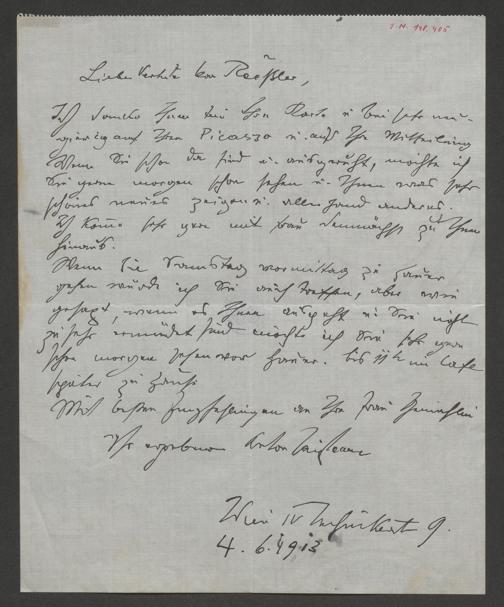 I.N. 148.405
Lieber Verehrter Herr Roeßler,
Ich danke Ihnen für Ihre Karte u bin sehr neu-
gierig auf Ihren Picasso u. auf Ihre Mitteilung
Wenn Sie schon da sind u. ausgeruht, möchte ich
Sie gerne morgen schon sehen u. Ihnen was sehr
schönes neues zeigen u. allerhand anderes.
Ich komme sehr gern mit Frau demnächst zu Ihnen
hinaus.
Wenn Sie Samstag vormittag zu
gehen würde ich Sie auch treffen, aber wie
gesagt, wenn es Ihnen ausgeht u Sie nicht
zu sehr ermüdet sind möchte ich Sie sehr gern
schon morgen sehen bis im Cafe
später zu Hause
Mit besten Empfehlungen an Ihre Frau Gemahlin
Ihr ergebener Anton
Wien IV 9.
4. 6. 1913